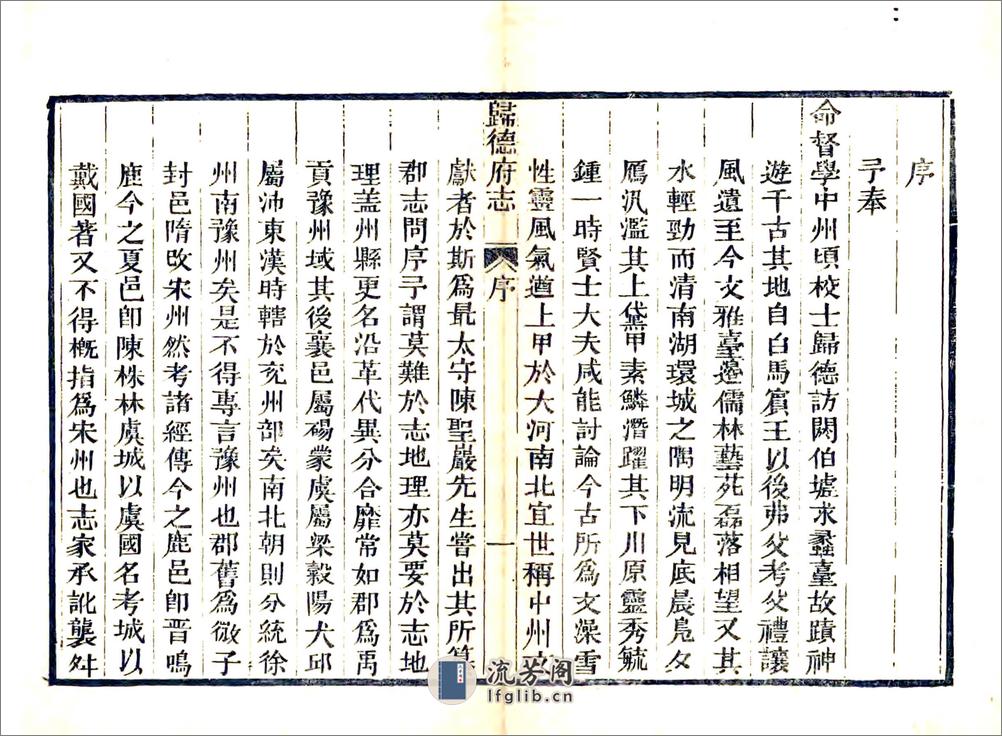 序
予奉
命督學中州頃校士歸德訪閼伯墟求蠡臺故蹟神
遊千古其地自白馬賓王以後弗父考父禮讓
風遺至今文雅臺邊儒林藝苑磊落相望又其
水輕勁而清南湖環城之隅明流見底晨鳧夕
鴈汎濫其上黛甲素鱗潛躍其下川原靈秀毓
鍾一時賢士大夫咸能討論今古所爲文澡雪
性靈風氣遒上甲於大河南北宜世稱中州
歸德府志 序 一
獻者於斯爲最太守陳聖嚴先生嘗出其所纂
郡志問序予謂莫難於志地理亦莫要於志地
理蓋州縣更名沿革代異分合靡常如郡爲禹
貢豫州域其後襄邑屬碭蒙虞屬梁穀陽犬邱
屬沛東漢時轄於兖州部矣南北朝則分統徐
州南豫州矣是不得專言豫州也郡舊爲微子
封邑隋改宋州然考諸經傳今之鹿邑卽晋鳴
鹿今之夏邑卽陳株林虞城以虞國名考城以
戴國著又不得槪指爲宋州也志家承訛襲舛
流芳阁
lfglib.cn